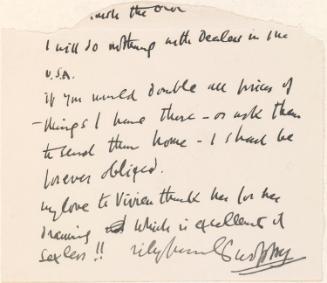 the
I will do nothing with Dealers in the
U.S.A.
if you would double all prices of
things I have there - or ask them
to send them home - I shall be
forever obliged.
my love to Vivien thank her for her
drawing which is excellent &
sexless !!